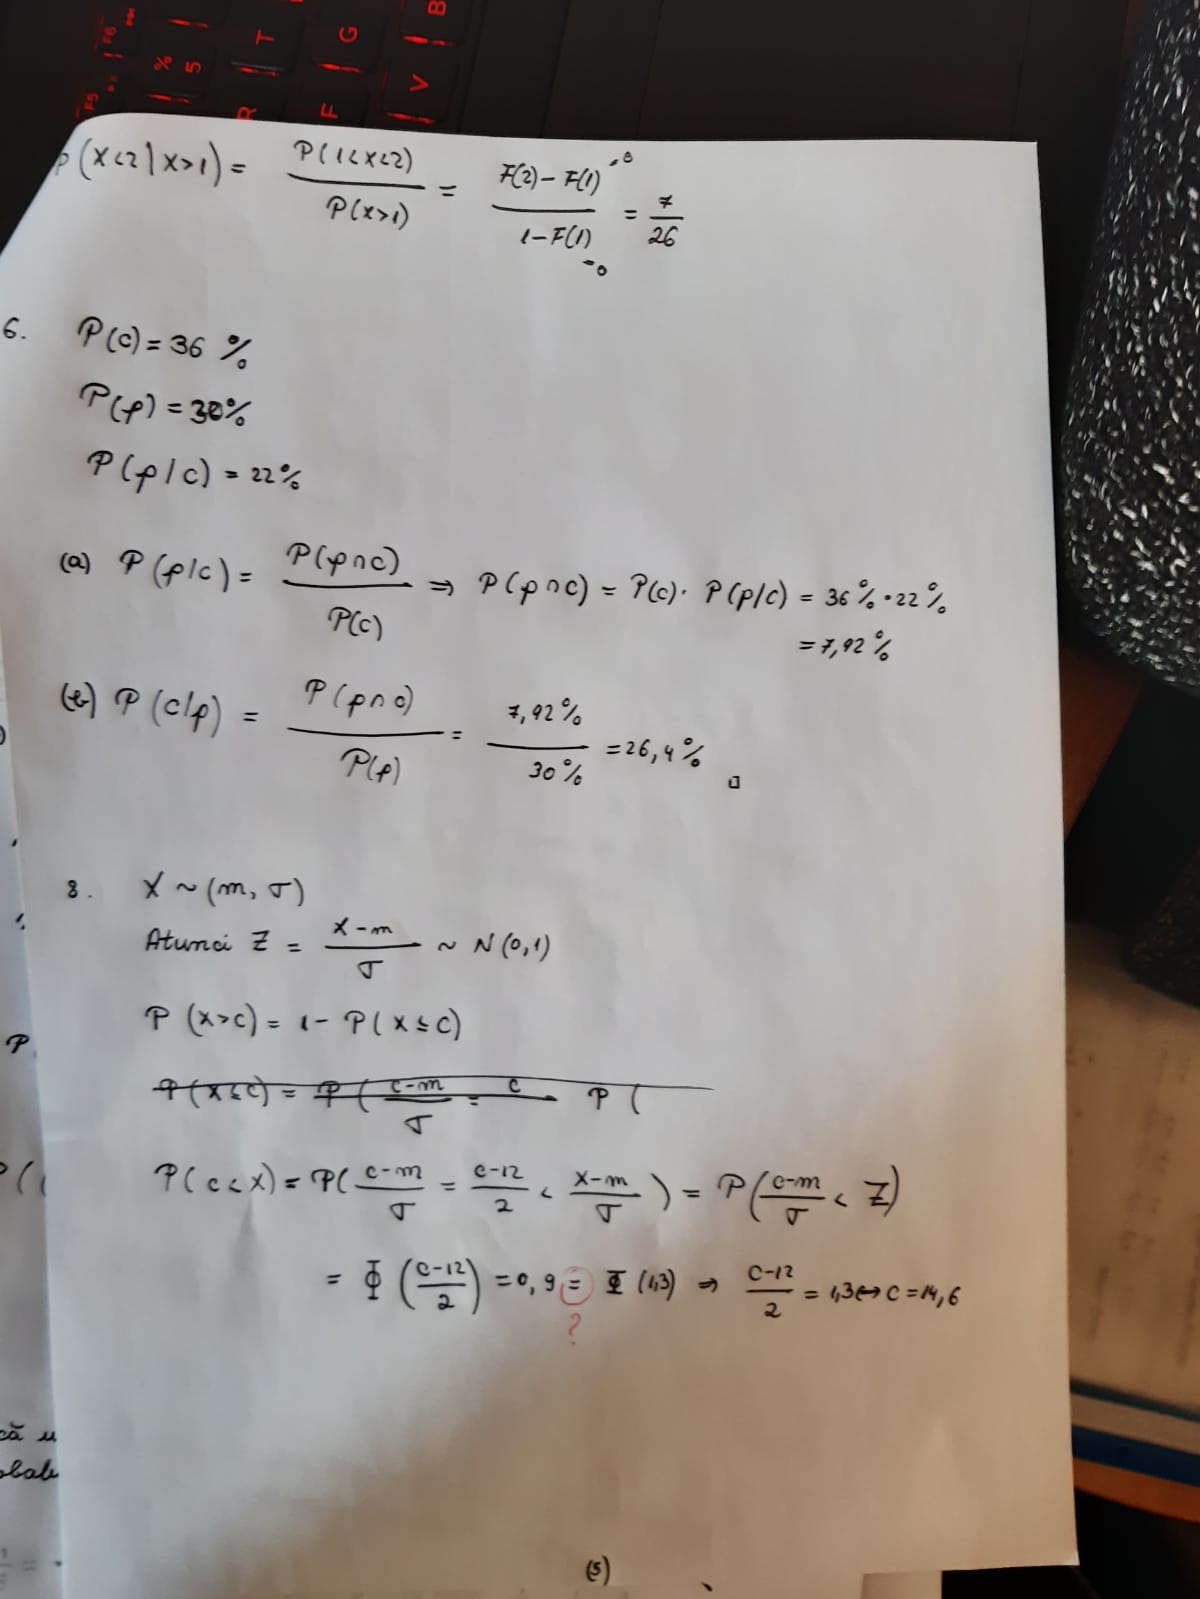 F5 F6
% 5 T G B
R F V
P(X<2|X>1) = P(1<X<2) / P(X>1) = F(2)-F(1) / 1-F(1) = 7/26
=0
=0
6. P(C) = 36 %
P(p) = 30%
P(p/C) = 22%
(a) P(p/C) = P(p∩C) / P(C) ⇒ P(p∩C) = P(C)· P(p/C) = 36%·22%
= 7,92%
(b) P(C/p) = P(p∩C) / P(p) = 7,92% / 30% = 26,4% □
8. X ~ (m, σ)
Atunci Z = X-m / σ ~ N(0,1)
P(X>C) = 1- P(X≤C)
P(X≤C) = P( C-m / σ = C P(
P(C<X) = P( C-m / σ = C-12 / 2 < X-m / σ ) = P( C-m / σ < Z)
= Φ( C-12 / 2 ) = 0,9 = Φ(1,3) ⇒ C-12 / 2 = 1,3 ↔ C = 14,6
?
P
P(
că
(5)